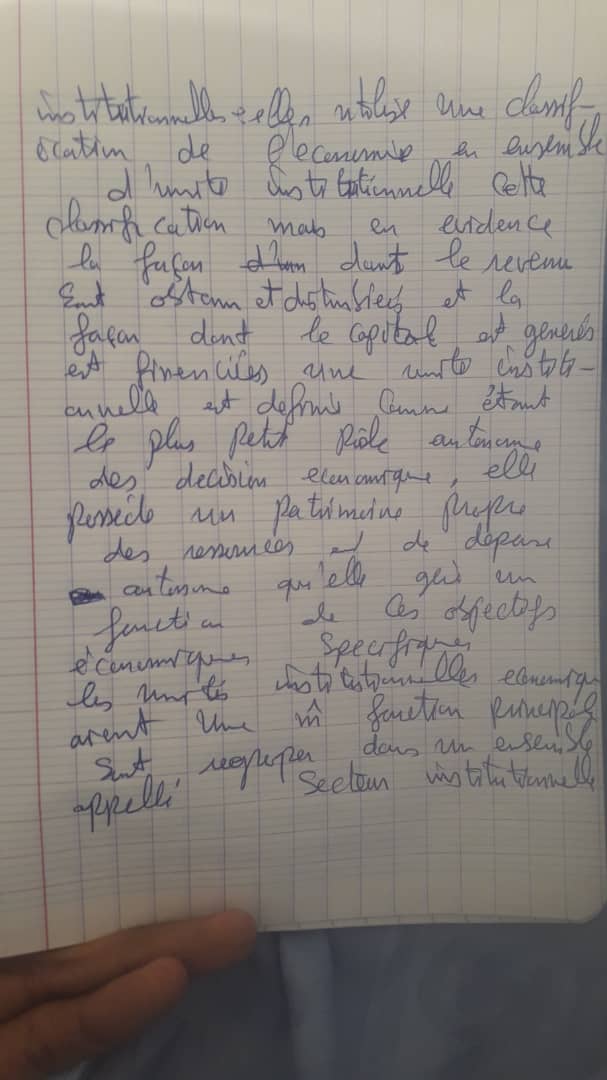 institutionnelles : elles utilise une classif-
ication de l'économie en ensemble
d'unité institutionnelle Cette
classification mas en evidence
la façon dont le revenu
Sont obtenu et distribués et la
façon dont le capital est generés
est financiées une unité institi-
onnelle est definis Comme étant
le plus petit Pôle autonome
des decision economique, elle
Possède un patrimoine propre
des ressources et de depense
autonome qu'elle gère un
fonction de Ces objectifs
économiques Specifiques
les unités institutionnelles economiq
arent Une m̂ fonction principal
Sont regruper dans un ensemble
appellé Secteur institutionnelle